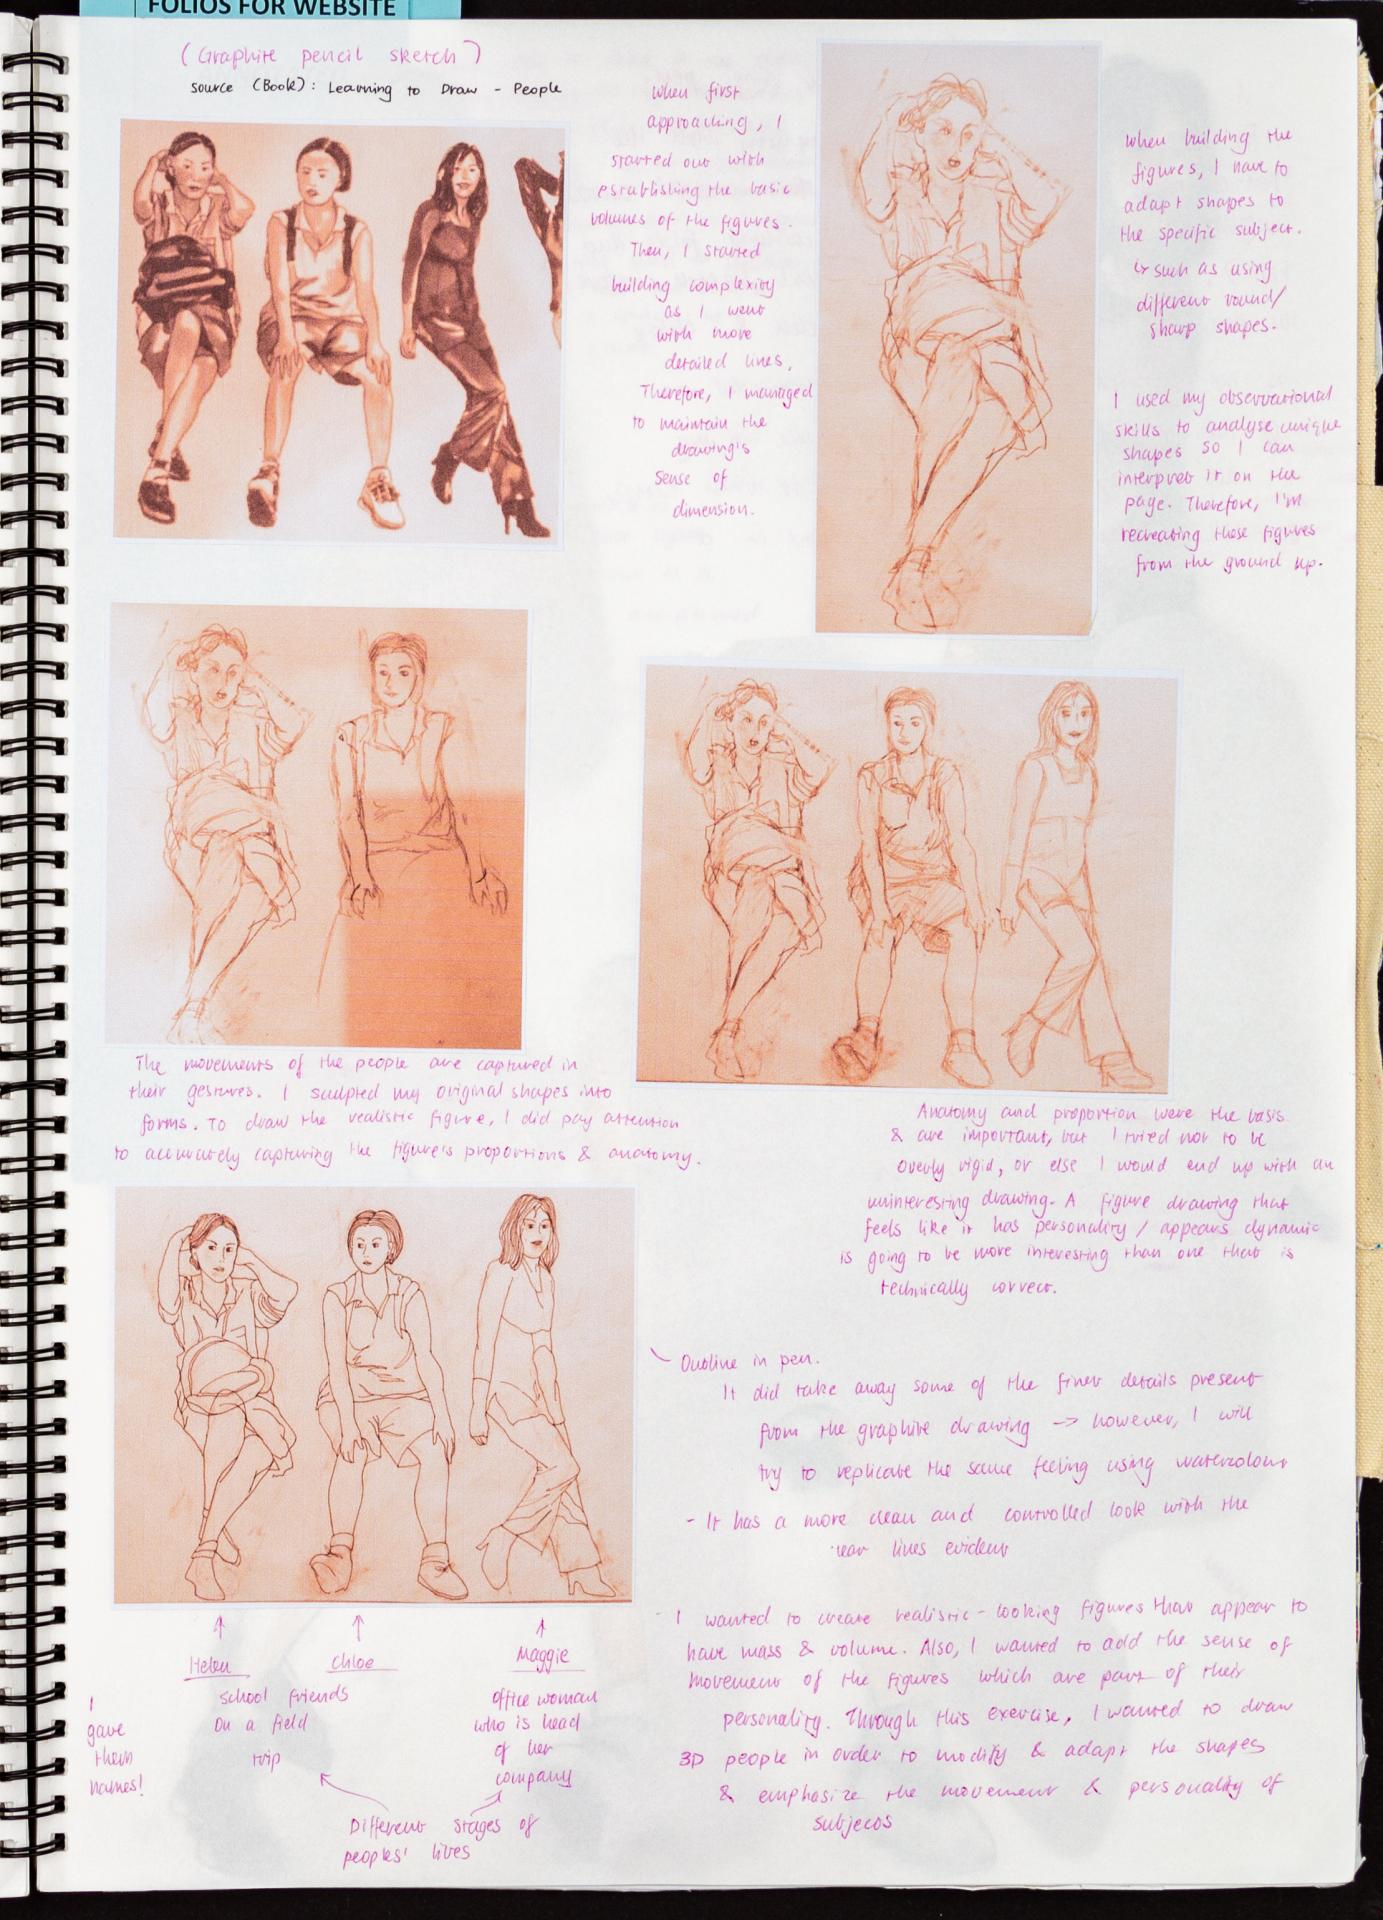 FOLIOS FOR WEBSITE
(Graphite pencil sketch)
source (Book): Learning to Draw - People
When first
approaching, I
started out with
establishing the basic
volumes of the figures.
Then, I started
building complexity
as I went
with more
detailed lines.
Therefore, I managed
to maintain the
drawing's
sense of
dimension.
When building the
figures, I have to
adapt shapes to
the specific subject.
↳ such as using
different round/
sharp shapes.
I used my observational
skills to analyse unique
shapes so I can
interpret it on the
page. Therefore, I'm
recreating these figures
from the ground up.
The movements of the people are captured in
their gestures. I sculpted my original shapes into
forms. To draw the realistic figure, I did pay attention
to accurately capturing the figure's proportions & anatomy.
Anatomy and proportion were the basis
& are important, but I tried not to be
overly rigid, or else I would end up with an
uninteresting drawing. A figure drawing that
feels like it has personality / appears dynamic
is going to be more interesting than one that is
technically correct.
Outline in pen.
It did take away some of the finer details present
from the graphite drawing -> however, I will
try to replicate the same feeling using watercolour
- It has a more clean and controlled look with the
lines evident
- I wanted to create realistic-looking figures that appear to
have mass & volume. Also, I wanted to add the sense of
movement of the figures which are part of their
personality. Through this exercise, I wanted to draw
3D people in order to modify & adapt the shapes
& emphasize the movement & personality of
subjects
I
gave
them
names!
Helen
Chloe
school friends
on a field
trip
Maggie
office woman
who is head
of her
company
Different stages of
peoples' lives